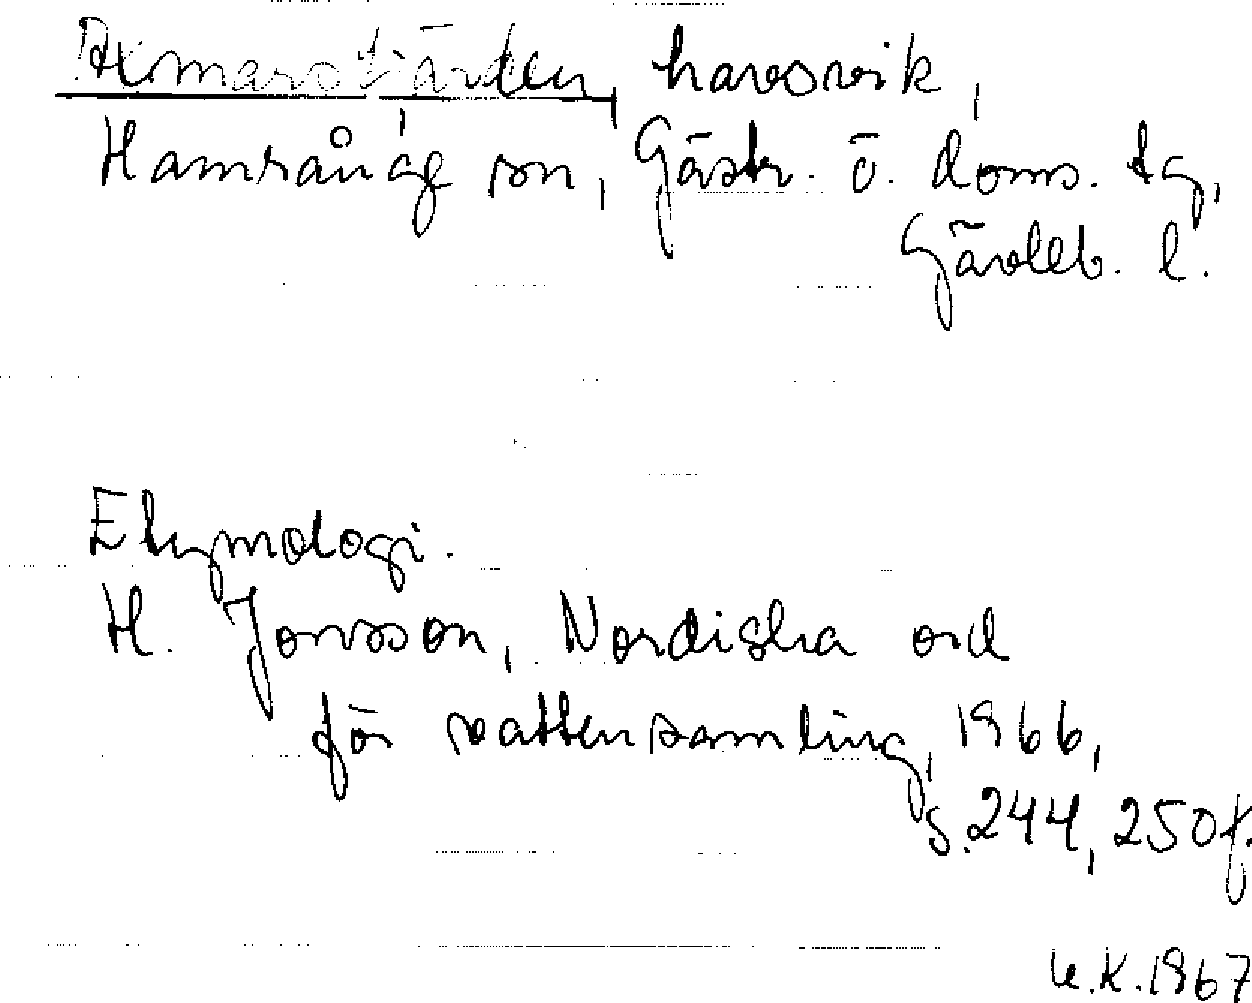 Axmarsfjärden, havsvik,
Hamrånge sn, Gästr. ö. doms. tg,
Gävleb. l.
Etymologi.
H. Jonsson, Nordiska ord
för vattensamling, 1966,
s. 244, 250f.
U.K. 1967